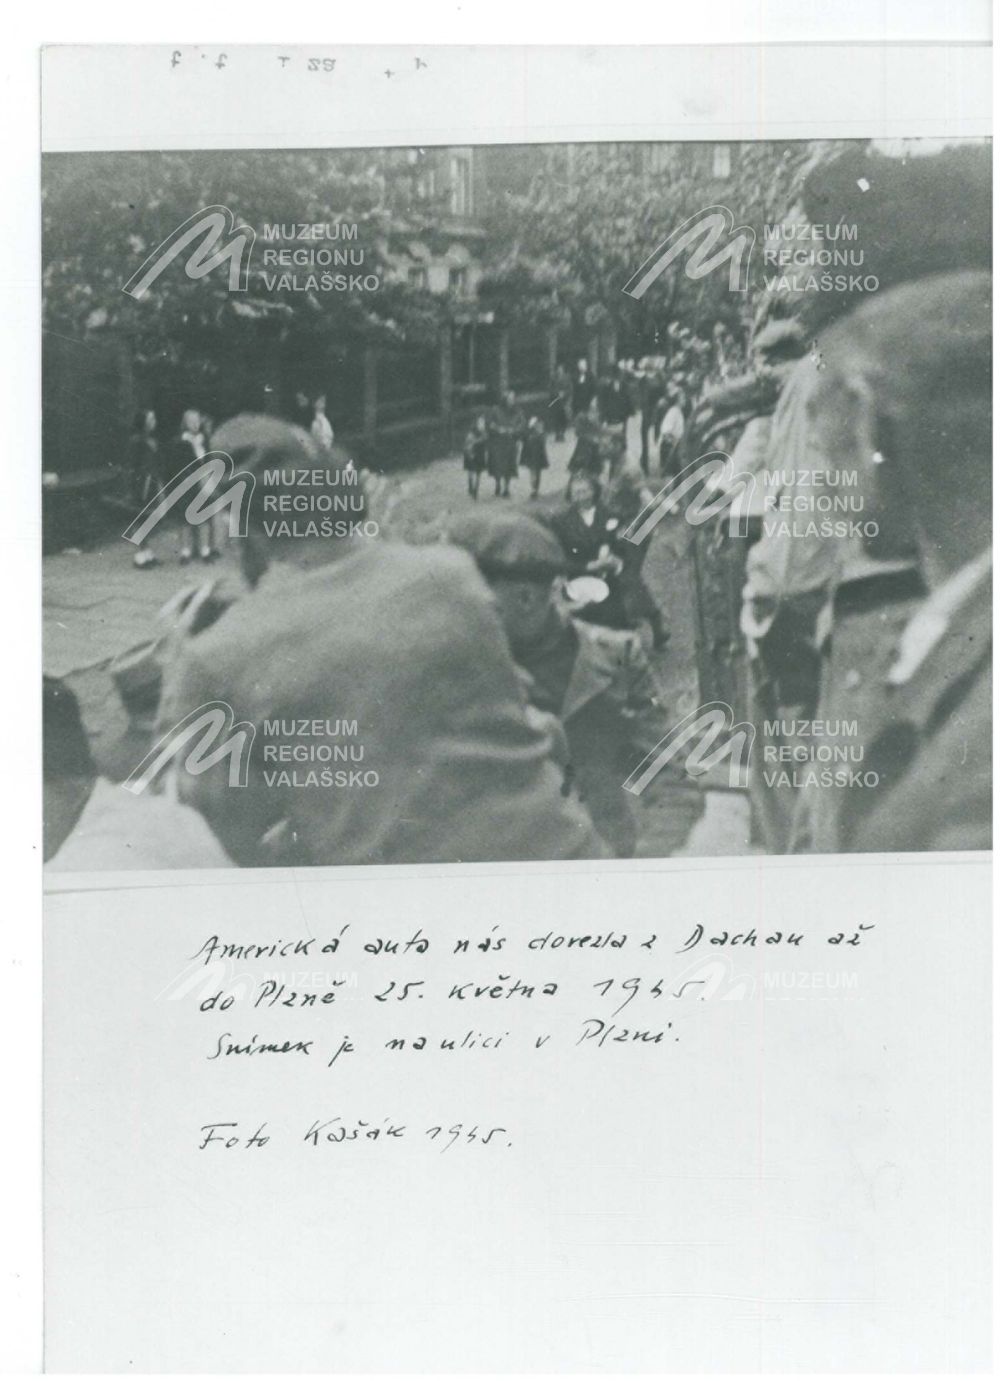 MUZEUM
REGIONU
VALAŠSKO
MUZEUM
REGIONU
VALAŠSKO
MUZEUM
REGIONU
VALAŠSKO
MUZEUM
REGIONU
VALAŠSKO
MUZEUM
REGIONU
VALAŠSKO
MUZEUM
REGIONU
VALAŠSKO
Americká auta nás dovezla z Dachau až
do Plzně 25. května 1945.
MUZEUM
MUZEUM
Snímek je na ulici v Plzni.
Foto Kašák 1945.